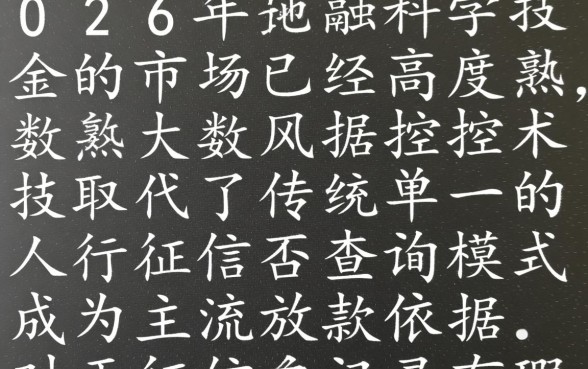 026年融科学技
金的市场已经高度熟,
数熟大数风据控控术
技取代了传统单一的
人行征信否查询模式
成为主流放款依据.